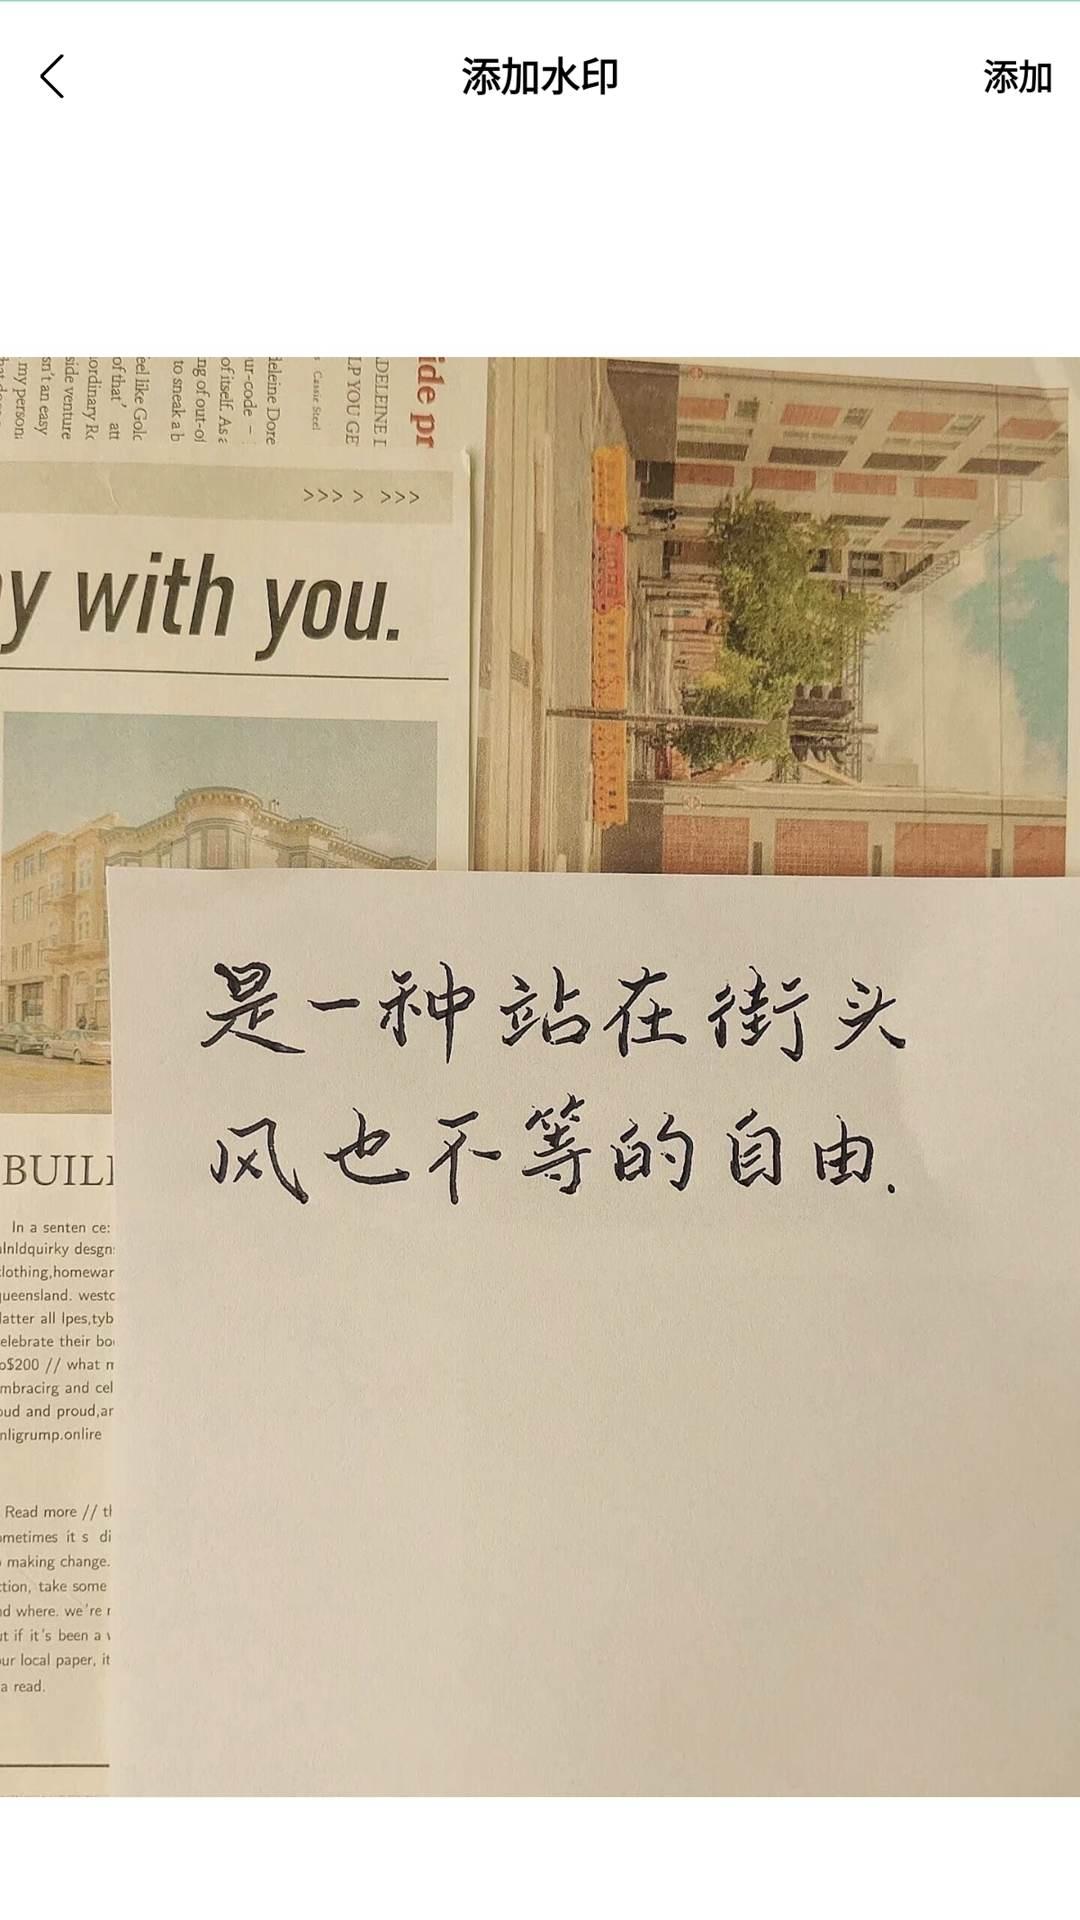 添加水印
添加
ide pr
DELEINE
LP YOU GE
Cassie Steel
deleine Dore
ur-code –
of itself. As
ng of out-of
to sneak a b
eel like Gol
of that' att
ordinary
side venture
sn't an easy
my person
>>> > >>>
y with you.
是一种站在街头
风也不等的自由.
BUIL
In a senten ce:
lnldquirky desgn
lothing,homewar
queensland. westc
latter all lpes,tyb
elebrate their bo
o$200 // what m
mbracirg and cel
oud and proud,ar
nligrump.onlire
Read more // th
ometimes it s di
making change.
ction, take some
nd where. we're r
ut if it's been a
our local paper, it
a read.